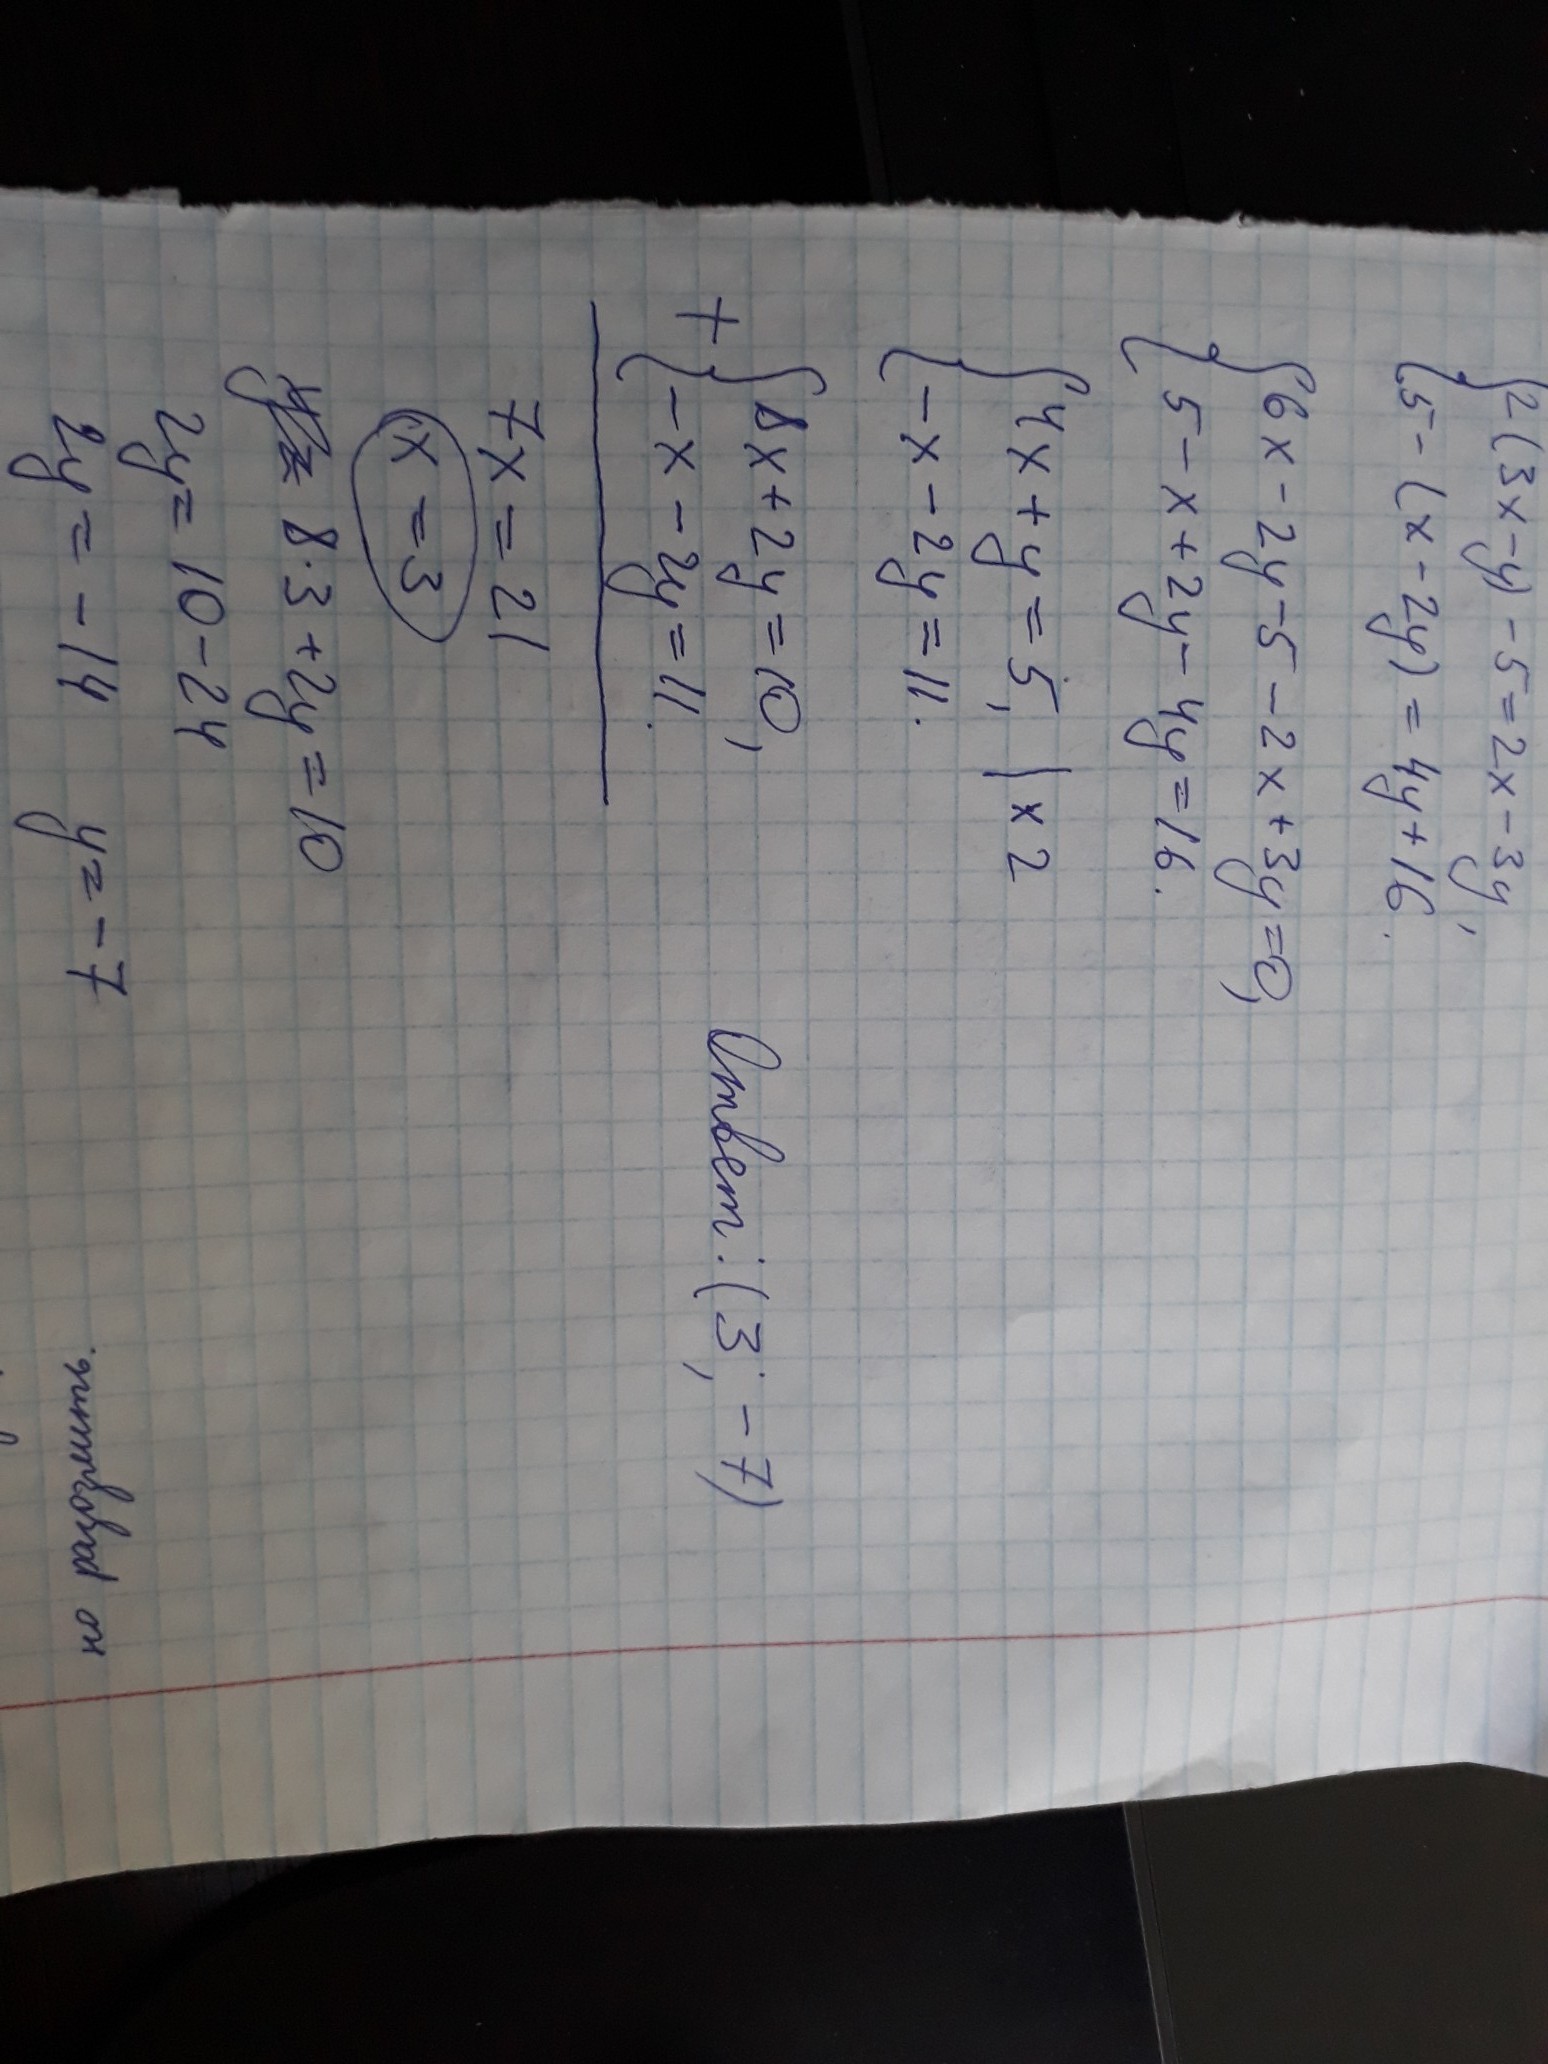 2(3x-y)-5=2x-3y,
5-(x-2y)=4y+16.
6x-2y-5-2x+3y=0,
5-x+2y-4y=16.
4x+y=5, |×2
-x-2y=11.
+ 8x+2y=10,
-x-2y=11.
7x=21
x=3
8·3+2y=10
2y=10-24
2y=-14 y=-7
Ответ: (3; -7)
он разготвить.